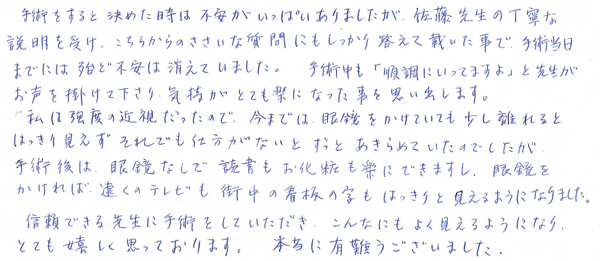 手術をすると決めた時は不安がいっぱいありましたが、佐藤先生の丁寧な
説明を受け、こちらからのささいな質問にもしっかり答えて戴いた事で、手術当日
までには殆ど不安は消えていました。　手術中も「順調にいってますよ」と先生が
お声を掛けて下さり、気持がとても楽になった事を思い出します。
私は強度の近視だったので、今までは、眼鏡をかけていても少し離れると
はっきり見えず それでも仕方がないと ずっと あきらめていたのでしたが、
手術後は、眼鏡なしで 読書も お化粧も楽にできますし、眼鏡を
かければ、遠くのテレビも 街中の看板の字も はっきりと見えるようになりました。
信頼できる先生に手術をしていただき、こんなにもよく見えるようになり、
とても嬉しく思っております。　本当に有難うございました。